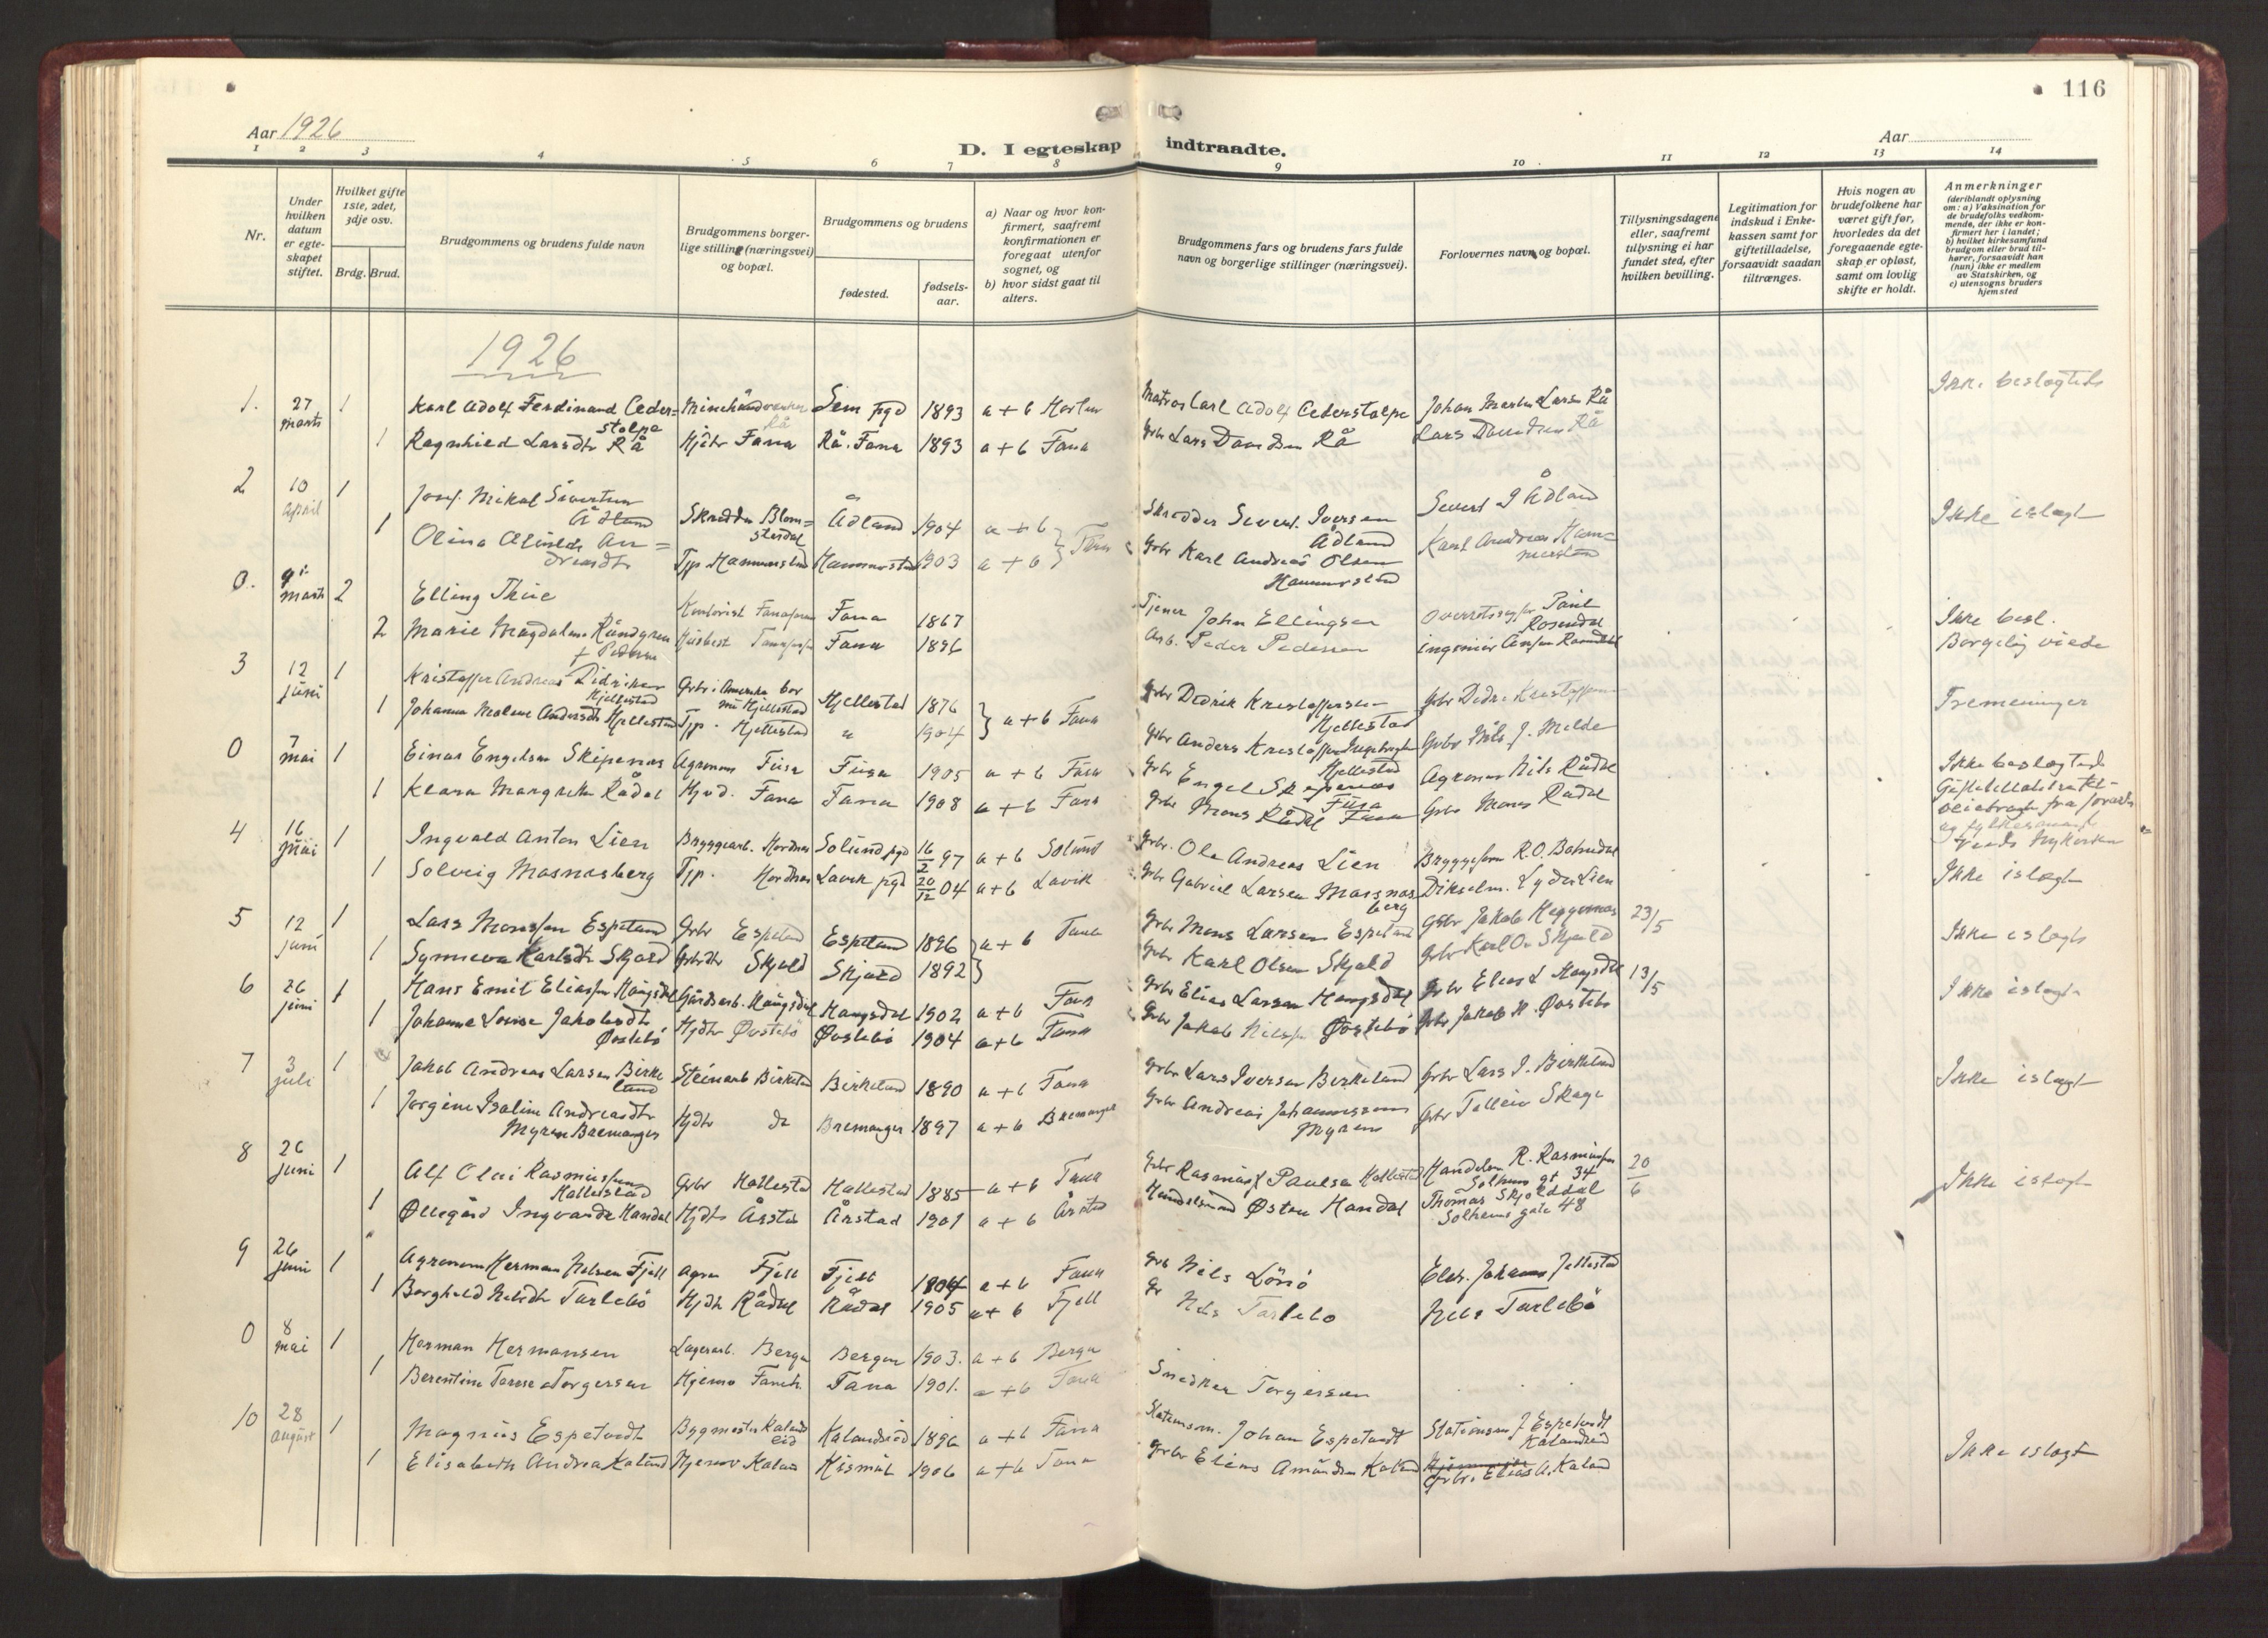 116
Aar 1926
D. I egteskap indtraadte.
Aar
1 2 3 4 5 6 7 8 9 10 11 12 13 14
Nr.
Under hvilken datum er egteskapet stiftet.
Hvilket gifte 1ste, 2det, 3dje osv.
Brdg. Brud.
Brudgommens og brudens fulde navn
Brudgommens borgerlige stilling (næringsvei) og bopæl.
Brudgommens og brudens
fødested.
fødselsaar.
a) Naar og hvor konfirmert, saafremt konfirmationen er foregaat utenfor sognet, og
b) hvor sidst gaat til alters.
Brudgommens fars og brudens fars fulde navn og borgerlige stillinger (næringsvei).
Forlovernes navn og bopæl.
Tillysningsdagene eller, saafremt tillysning ei har fundet sted, efter hvilken bevilling.
Legitimation for indskud i Enkekassen samt for giftetilladelse, forsaavidt saadan tiltrænges.
Hvis nogen av brudefolkene har været gift før, hvorledes da det foregaaende egteskap er opløst, samt om lovlig skifte er holdt.
Anmerkninger
(deriblandt oplysning om: a) Vaksination for de brudefolks vedkommende, der ikke er konfirmert her i landet; b) hvilket kirkesamfund brudgom eller brud tilhører, forsaavidt han (hun) ikke er medlem av Statskirken, og c) utensogns bruders hjemsted
1926
1. 27 marts 1 Karl Adolf Ferdinand Cederstolpe Sem pgd 1893 a + b Horten Matros Carl Adolf Cederstolpe Johan Martin Larsen Rå Ikke beslegtede
1 Ragnhild Larsdtr Rå Hjdtr Fana Rå. Fana 1893 a + b Fana Grbr Lars Davidsen Rå Lars Davidsen Rå
2 10 april 1 Josef Mikal Sivertsen Ådland Skrædder Blomsterdal Ådland 1904 a + b Skrædder Sivert Iversen Ådland Sivert I Ådland Ikke i slegt
1 Olina Andreasdtr Tjp Hammersland 1903 a + b Fana Grbr Karl Andreas Olsen Karl Andreas
0. 9 marts 2 Elling Thue Kontorist Fana 1867 Tjener John Ellingsen Paul Rosendal Ikke besl.
2 Marie Magdalene f. Pedersen Fana 1896 Arb. Peder Pedersen Borgelig viede
3 12 juni 1 Kristoffer Andreas Didriksen Hjellestad Grbr i Amerika bor nu Hjellestad Hjellestad 1876 Grbr Didrik Kristoffersen Hjellestad Tremeninger
1 Johanna Malene Andersdtr Hjellestad Tjp. Hjellestad " 1904 } a + b Fana Grbr Anders Kristoffersen Hjellestad Grbr Nils J. Milde
0 7 mai 1 Einar Engelsen Skipenes Agronom Fusa Fusa 1905 a + b Fusa Grbr Engel Skipenes Fusa Agronom Nils Rådal Ikke beslegtede
1 Klara Margrethe Rådal Hjvd. Fana Fana 1908 a + b Fana Grbr Mons Rådal Fana Grbr Mons Rådal
4 16 mai 1 Ingvald Anton Lien Bryggearb. Hordnes Solund pgd 16/2 97 a + b Solund Grbr. Ole Andreas Lien R. O. Ikke i slegt
1 Solveig Masnesberg Tjp. Hordnes Lavik pgd 20/12 04 a + b Lavik Grbr Gabriel Larsen Massnesberg Lyder Lien
5 12 juni 1 Lars Monssen Espeland Grbr Espeland Espeland 1896 } a + b Fana Grbr Mons Larsen Espeland Grbr Jakob Heggernes 23/5 Ikke i slegt
1 Synneva Karlsdtr Skjold Grbrdtr Skjold Skjold 1892 Grbr Karl Olsen Skjold Grbr Karl O. Skjold
6 26 juni 1 Hans Emil Eliassen Haugsdal Gårdsarb. Haugsdal Haugsdal 1902 a + b Fana Grbr Elias Larsen Haugsdal Grbr Elias L Haugsdal 13/5 Ikke i slegt
1 Johanna Lovise Jakobsdtr Øvstebø Hjdtr Øvstebø Øvstebø 1904 a + b Fana Grbr Jakob Nilsen Øvstebø Grbr Jakob N. Øvstebø
7 3 juli 1 Jakob Andreas Larsen Birkeland Steinarb Birkeland Birkeland 1890 a + b Fana Grbr Lars Iversen Birkeland Grbr Lars I. Birkeland Ikke i slegt
1 Jørgine Isaline Andreasdtr Myren Bremanger Hjdtr do Bremanger 1897 a + b Bremanger Grbr Andreas Johannessen Myren Grbr Tolleiv Skage
8 26 juni 1 Alf Olai Rasmussen Hatlestad Grbr Hatlestad Hatlestad 1885 a + b Fana Grbr Rasmus Paulsen Hatlestad Handelsm R. Rasmussen Solheims gt 34 20/6 Ikke i slegt
1 Øllegård Handal Hjdtr Årstad Årstad 1901 a + b Årstad Handelsmand Østen Handal Thomas Skjolddal Solheims gate 48
9 26 juni 1 Agronom Herman Nilsen Fjell Agro Fjell Fjell 1904 a + b Fana Grb Nils Elekt. Johannes
1 Borghild Nilsdtr Tarlebø Hjdtr Rådal Rådal 1905 a + b Fjell Gr Nils Tarlebø Nils Tarlebø
0 8 mai 1 Herman Hermansen Lagerarb. Bergen Bergen 1903. a + b Bergen
1 Berentine Torgersen Hjemme Fana 1901. a + b Fana Snedker Torgersen
10 28 august 1 Magnus Espetvedt Bygmester Kalandseid Kalandseid 1896 a + b Fana Stationsm. Johan Espetvedt Stationsm J Espetvedt Kalandseid
1 Elisabeth Andrea Kaland Hjemmev Kaland Kismul 1906 a + b Fana Grbr Elias Amundsen Kaland Grbr. Elias A. Kaland Ikke i slegt